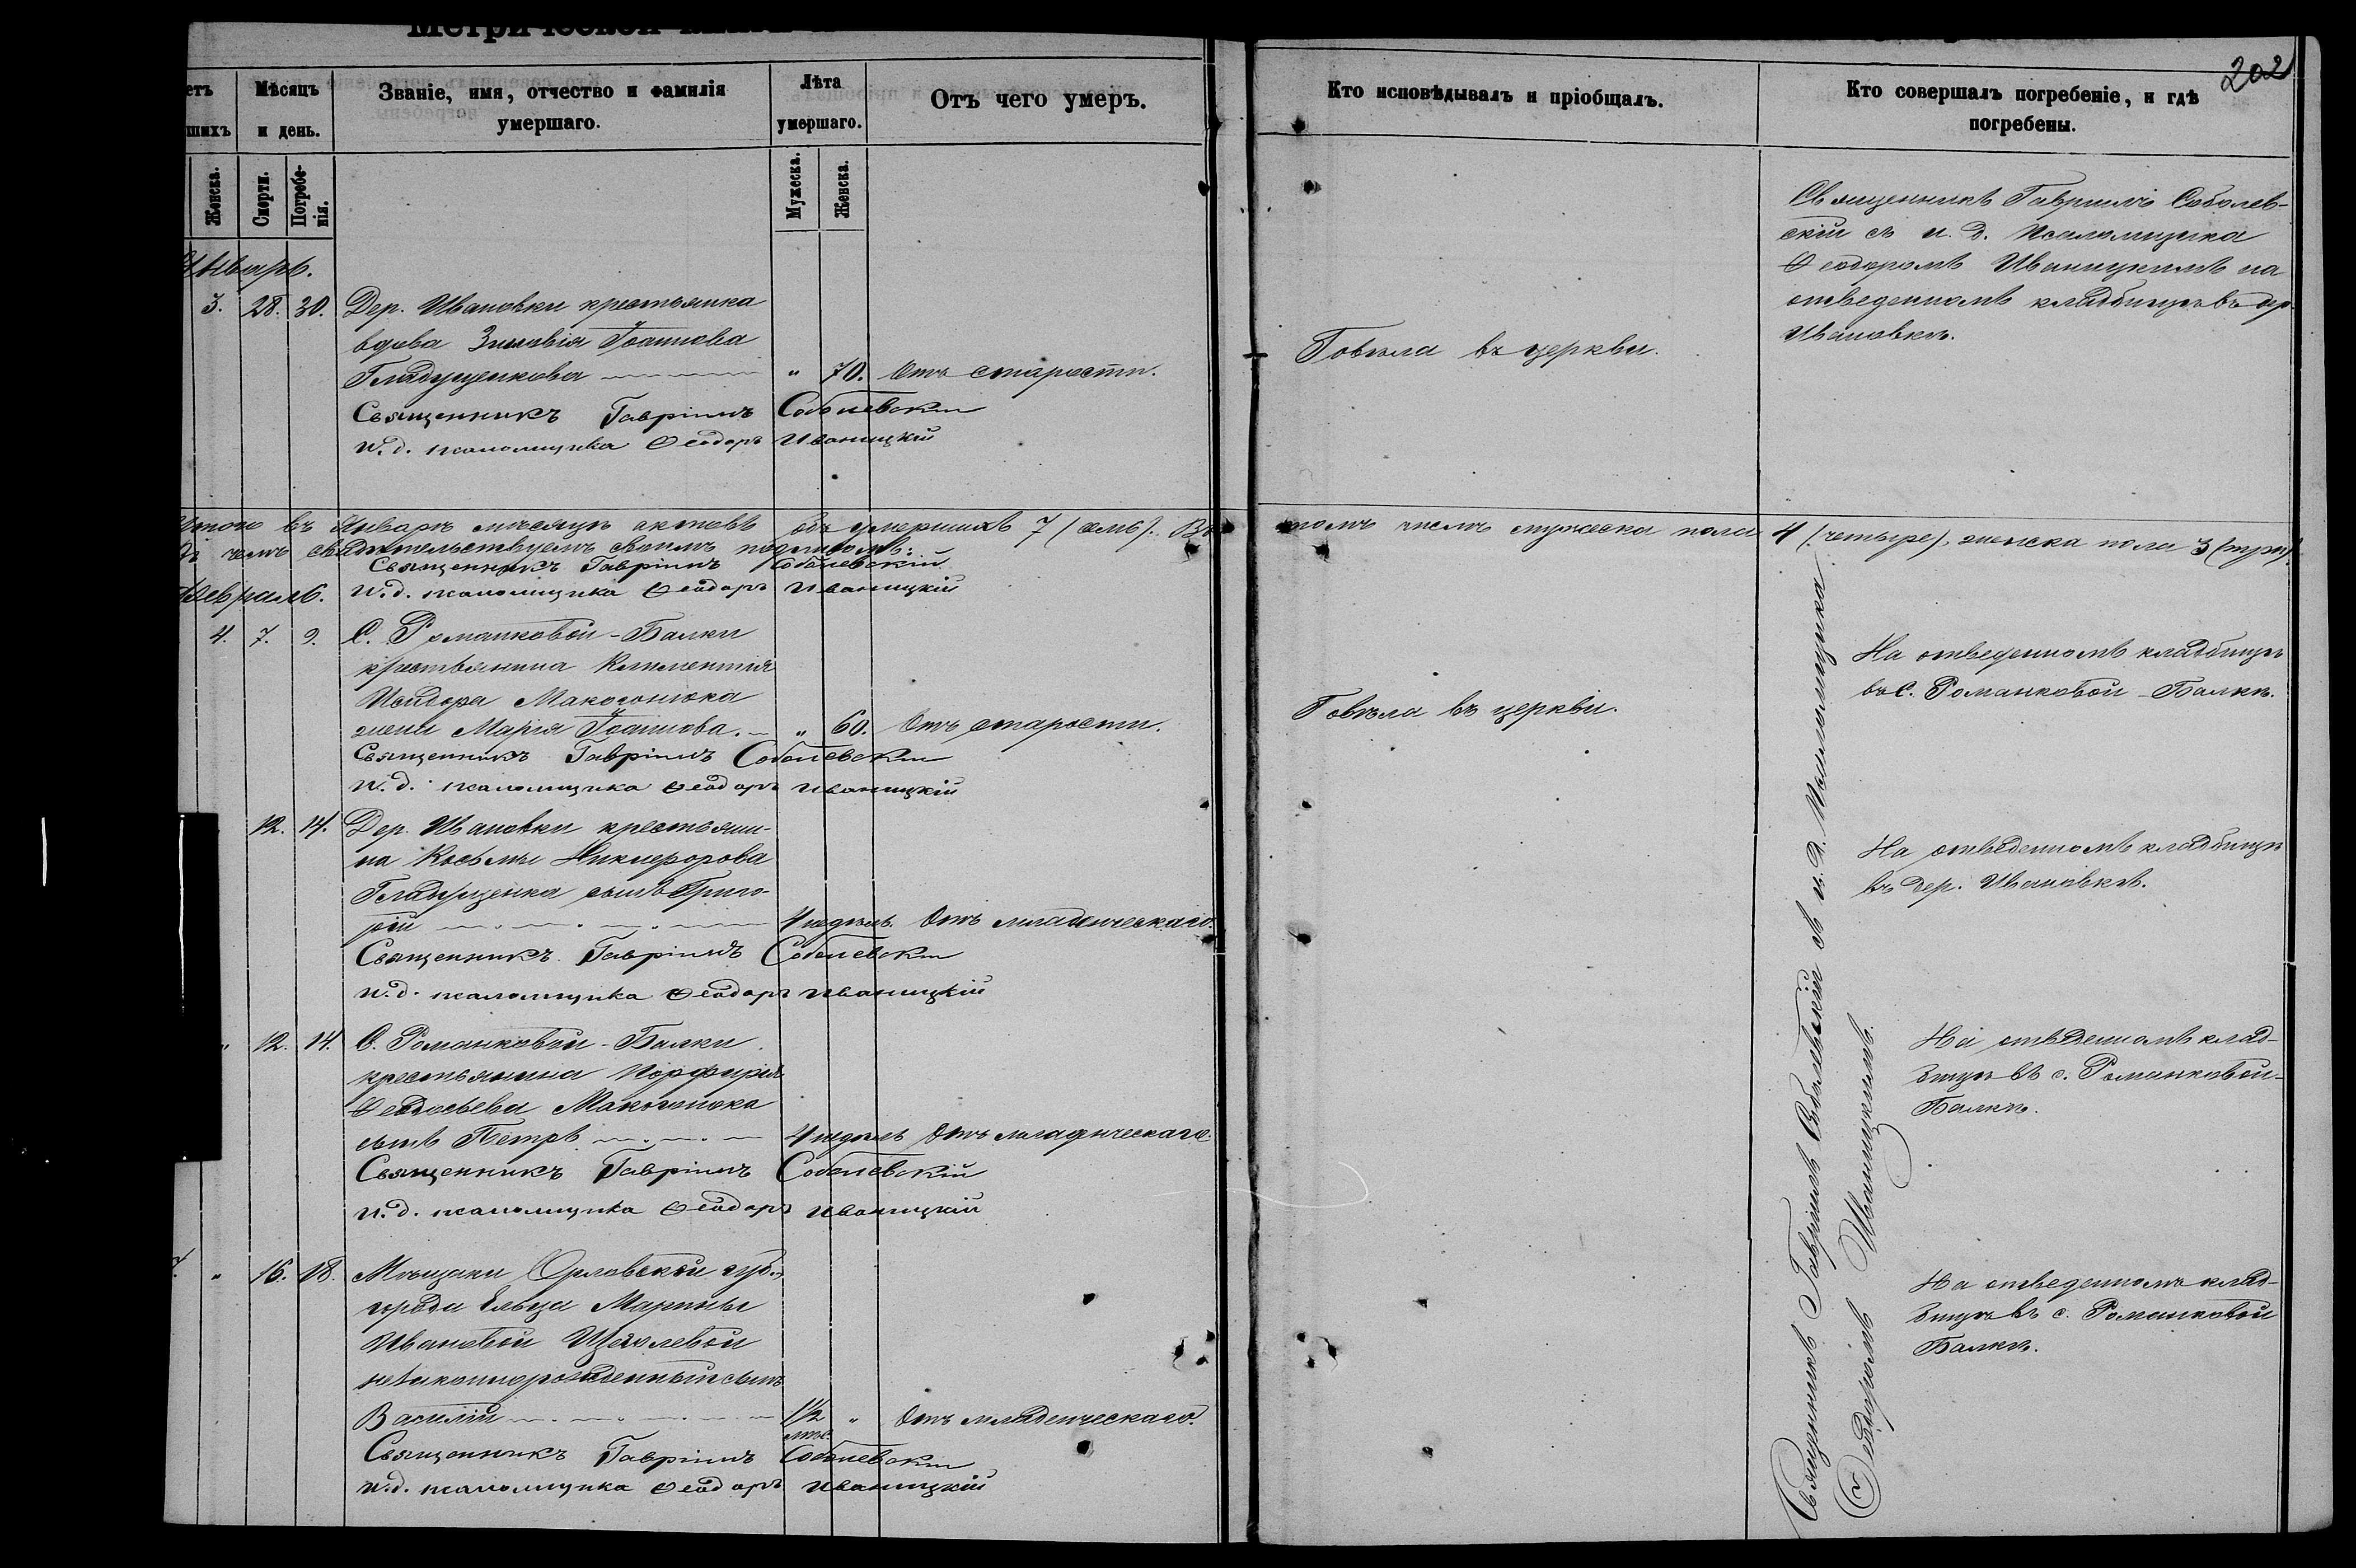 202
етъ
шихъ
Мѣсяцъ
и день.
Званіе, имя, отчество и фамилія
умершаго.
Лѣта
умершаго.
Отъ чего умеръ.
Кто исповѣдывалъ и пріобщалъ.
Кто совершалъ погребеніе, и гдѣ
погребены.
Женска.
Смерти.
Погребе-
нія.
Мужеска.
Женска.
Январь.
3. 28. 30. Дер. Ивановки крестьянка
вдова Зиновія Іоаннова
Гладущенкова " 70. Отъ старости.
Говѣла въ церкви.
Священникъ Гавріилъ Соболев-
скій съ и. д. псаломщика
Ѳеодоромъ Иваницкимъ на
отведенномъ кладбищѣ въ дер.
Ивановкѣ.
Священникъ Гавріилъ Соболевскій
и. д. псаломщика Ѳеодоръ Иваницкій
Итого въ Январѣ мѣсяцѣ актовъ объ умершихъ 7 (семь). Въ томъ числѣ мужеска пола 4 (четыре), женска пола 3 (три).
чемъ свидѣтельствуемъ своимъ подписомъ:
Священникъ Гавріилъ Соболевскій
и. д. псаломщика Ѳеодоръ Иваницкій
Февраль.
4. 7. 9. С. Романковой-Балки
крестьянина Климентія
Исидора Макогонюка
жена Марія Іоаннова. " 60. Отъ старости.
Говѣла въ церкви.
На отведенномъ кладбищѣ
въ с. Романковой-Балкѣ.
Священникъ Гавріилъ Соболевскій
и. д. псаломщика Ѳеодоръ Иваницкій
12. 14. Дер. Ивановки крестьяни-
на Косьмы Никифорова
Гладущенка сынъ Григо-
рій 4 недѣль. Отъ младенческаго.
На отведенномъ кладбищѣ
въ дер. Ивановкѣ.
Священникъ Гавріилъ Соболевскій
и. д. псаломщика Ѳеодоръ Иваницкій
" 12. 14. С. Романковой-Балки
крестьянина Порфирія
Ѳеодосьева Макогонюка
сынъ Петръ 4 недѣль Отъ младенческаго.
На отведенномъ клад-
бищѣ въ с. Романковой-
Балкѣ.
Священникъ Гавріилъ Соболевскій
и. д. псаломщика Ѳеодоръ Иваницкій
" 16. 18. Мѣщанки Орловской губ.,
города Ельца Марины
Ивановой
незаконнорожденный сынъ
Василій 1½ мѣс. " Отъ младенческаго.
На отведенномъ клад-
бищѣ въ с. Романковой
Балкѣ.
Священникъ Гавріилъ Соболевскій
и. д. псаломщика Ѳеодоръ Иваницкій
Священникъ Гавріилъ Соболевскій съ и. д. Псаломщика
Ѳеодоромъ Иваницкимъ.